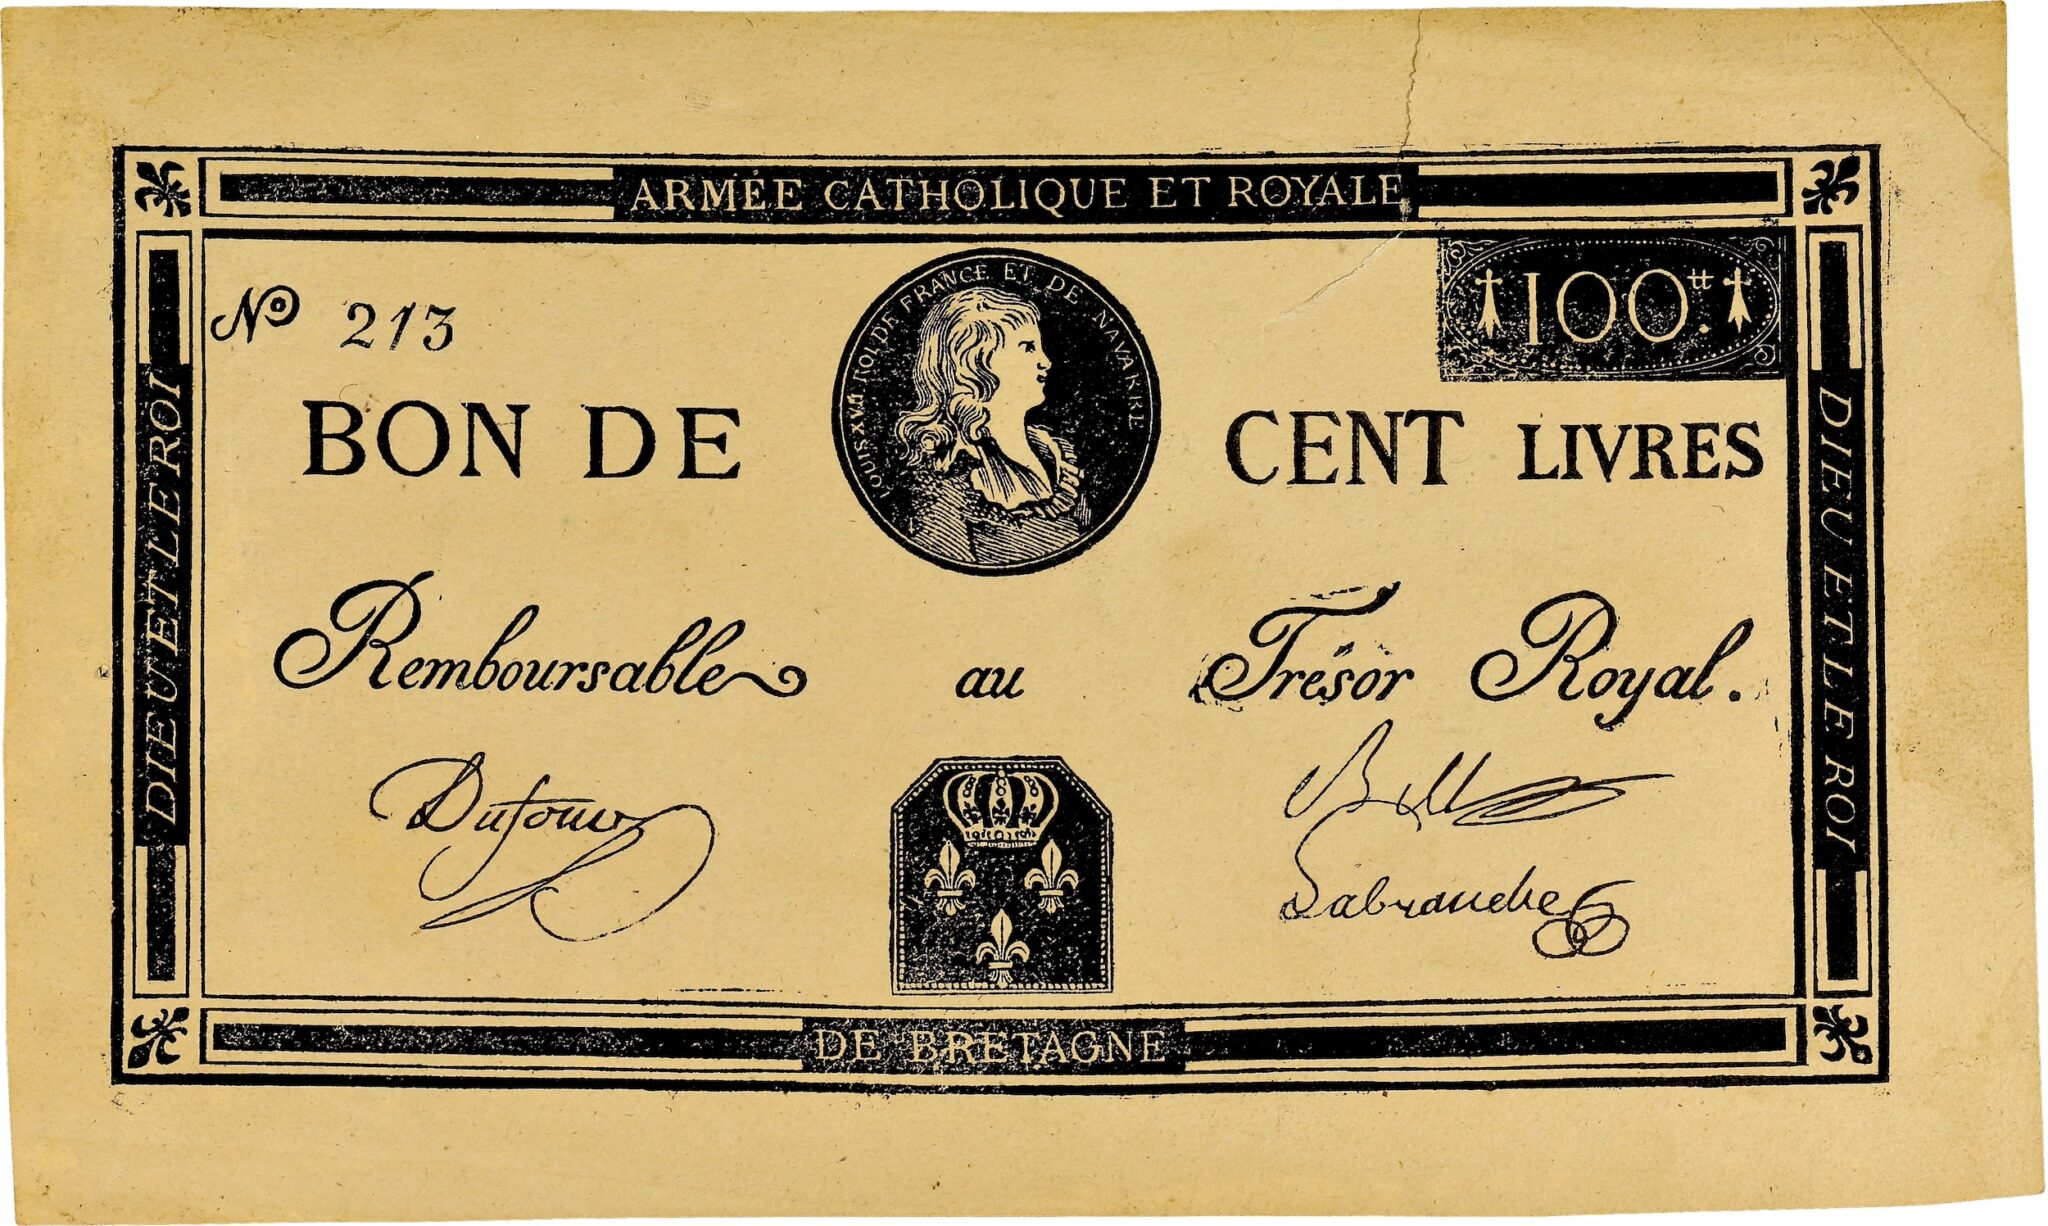 ARMÉE CATHOLIQUE ET ROYALE
Nº 213
LOUIS XVII ROI DE FRANCE ET DE NAVARRE
100 ᵗᵗ.
BON DE CENT LIVRES
Remboursable au Trésor Royal.
Dufour
Labranche
DIEU ET LE ROI
DIEU ET LE ROI
DE BRETAGNE